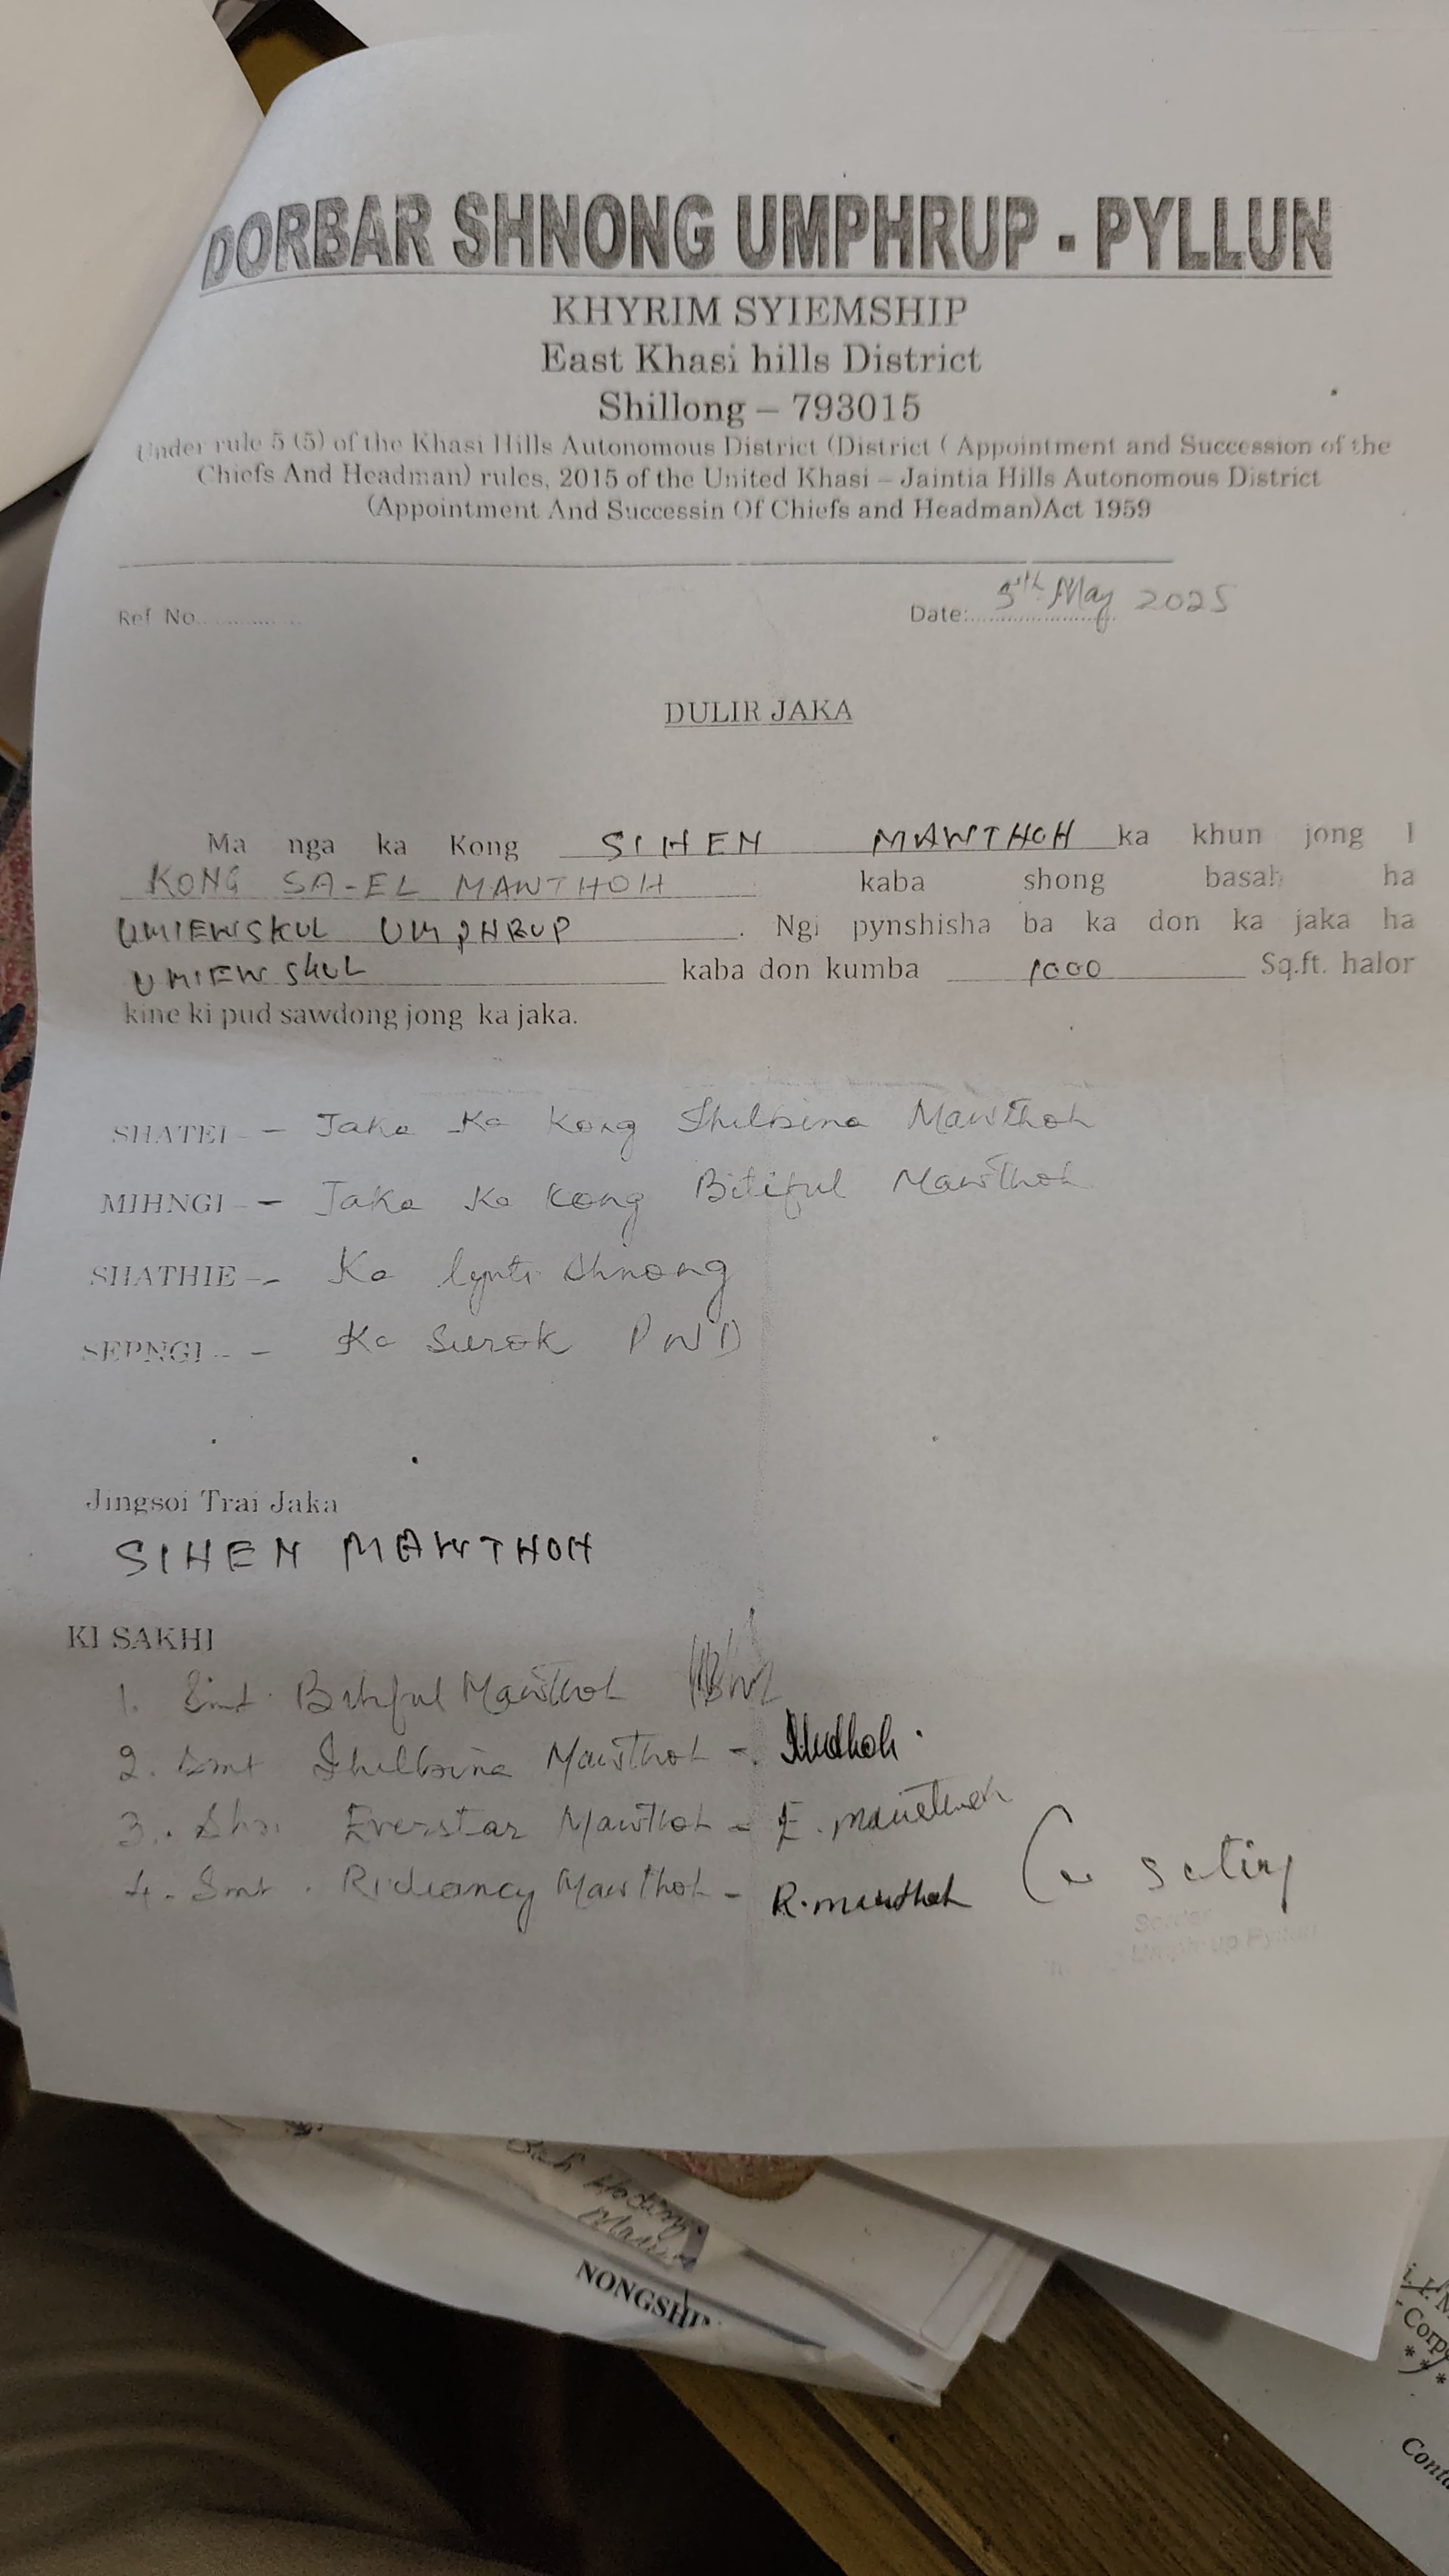 DORBAR SHNONG UMPHRUP - PYLLUN
KHYRIM SYIEMSHIP
East Khasi hills District
Shillong – 793015
Under rule 5 (5) of the Khasi Hills Autonomous District (District ( Appointment and Succession of the
Chiefs And Headman) rules, 2015 of the United Khasi – Jaintia Hills Autonomous District
(Appointment And Successin Of Chiefs and Headman)Act 1959
Ref No............... Date:...................... May 2025
DULIR JAKA
Ma nga ka Kong SIHEN MAWTHOH ka khun jong I
KONG SA-EL MAWTHOH kaba shong basah ha
UMIEWSKUL UMPHRUP. Ngi pynshisha ba ka don ka jaka ha
UMIEWSKUL kaba don kumba 1000 Sq.ft. halor
kine ki pud sawdong jong ka jaka.
SHATEI - – Jaka Ka Kong Shilbina Mawthoh
MIHNGI - – Jaka Ka Kong Bitiful Mawthoh
SHATHIE -- Ka lynti shnong
SEPNGI - – Ka Surok PWD
Jingsoi Trai Jaka
SIHEN MAWTHOH
KI SAKHI
1. Smt. Bitiful Mawthoh
2. Smt Shilbina Mawthoh -
3. Shri Everstar Mawthoh - E. Mawthoh
4. Smt. Mawthoh - R. Mawthoh
Umphrup Pyllun
NONGSHI
Corp
***
Conta